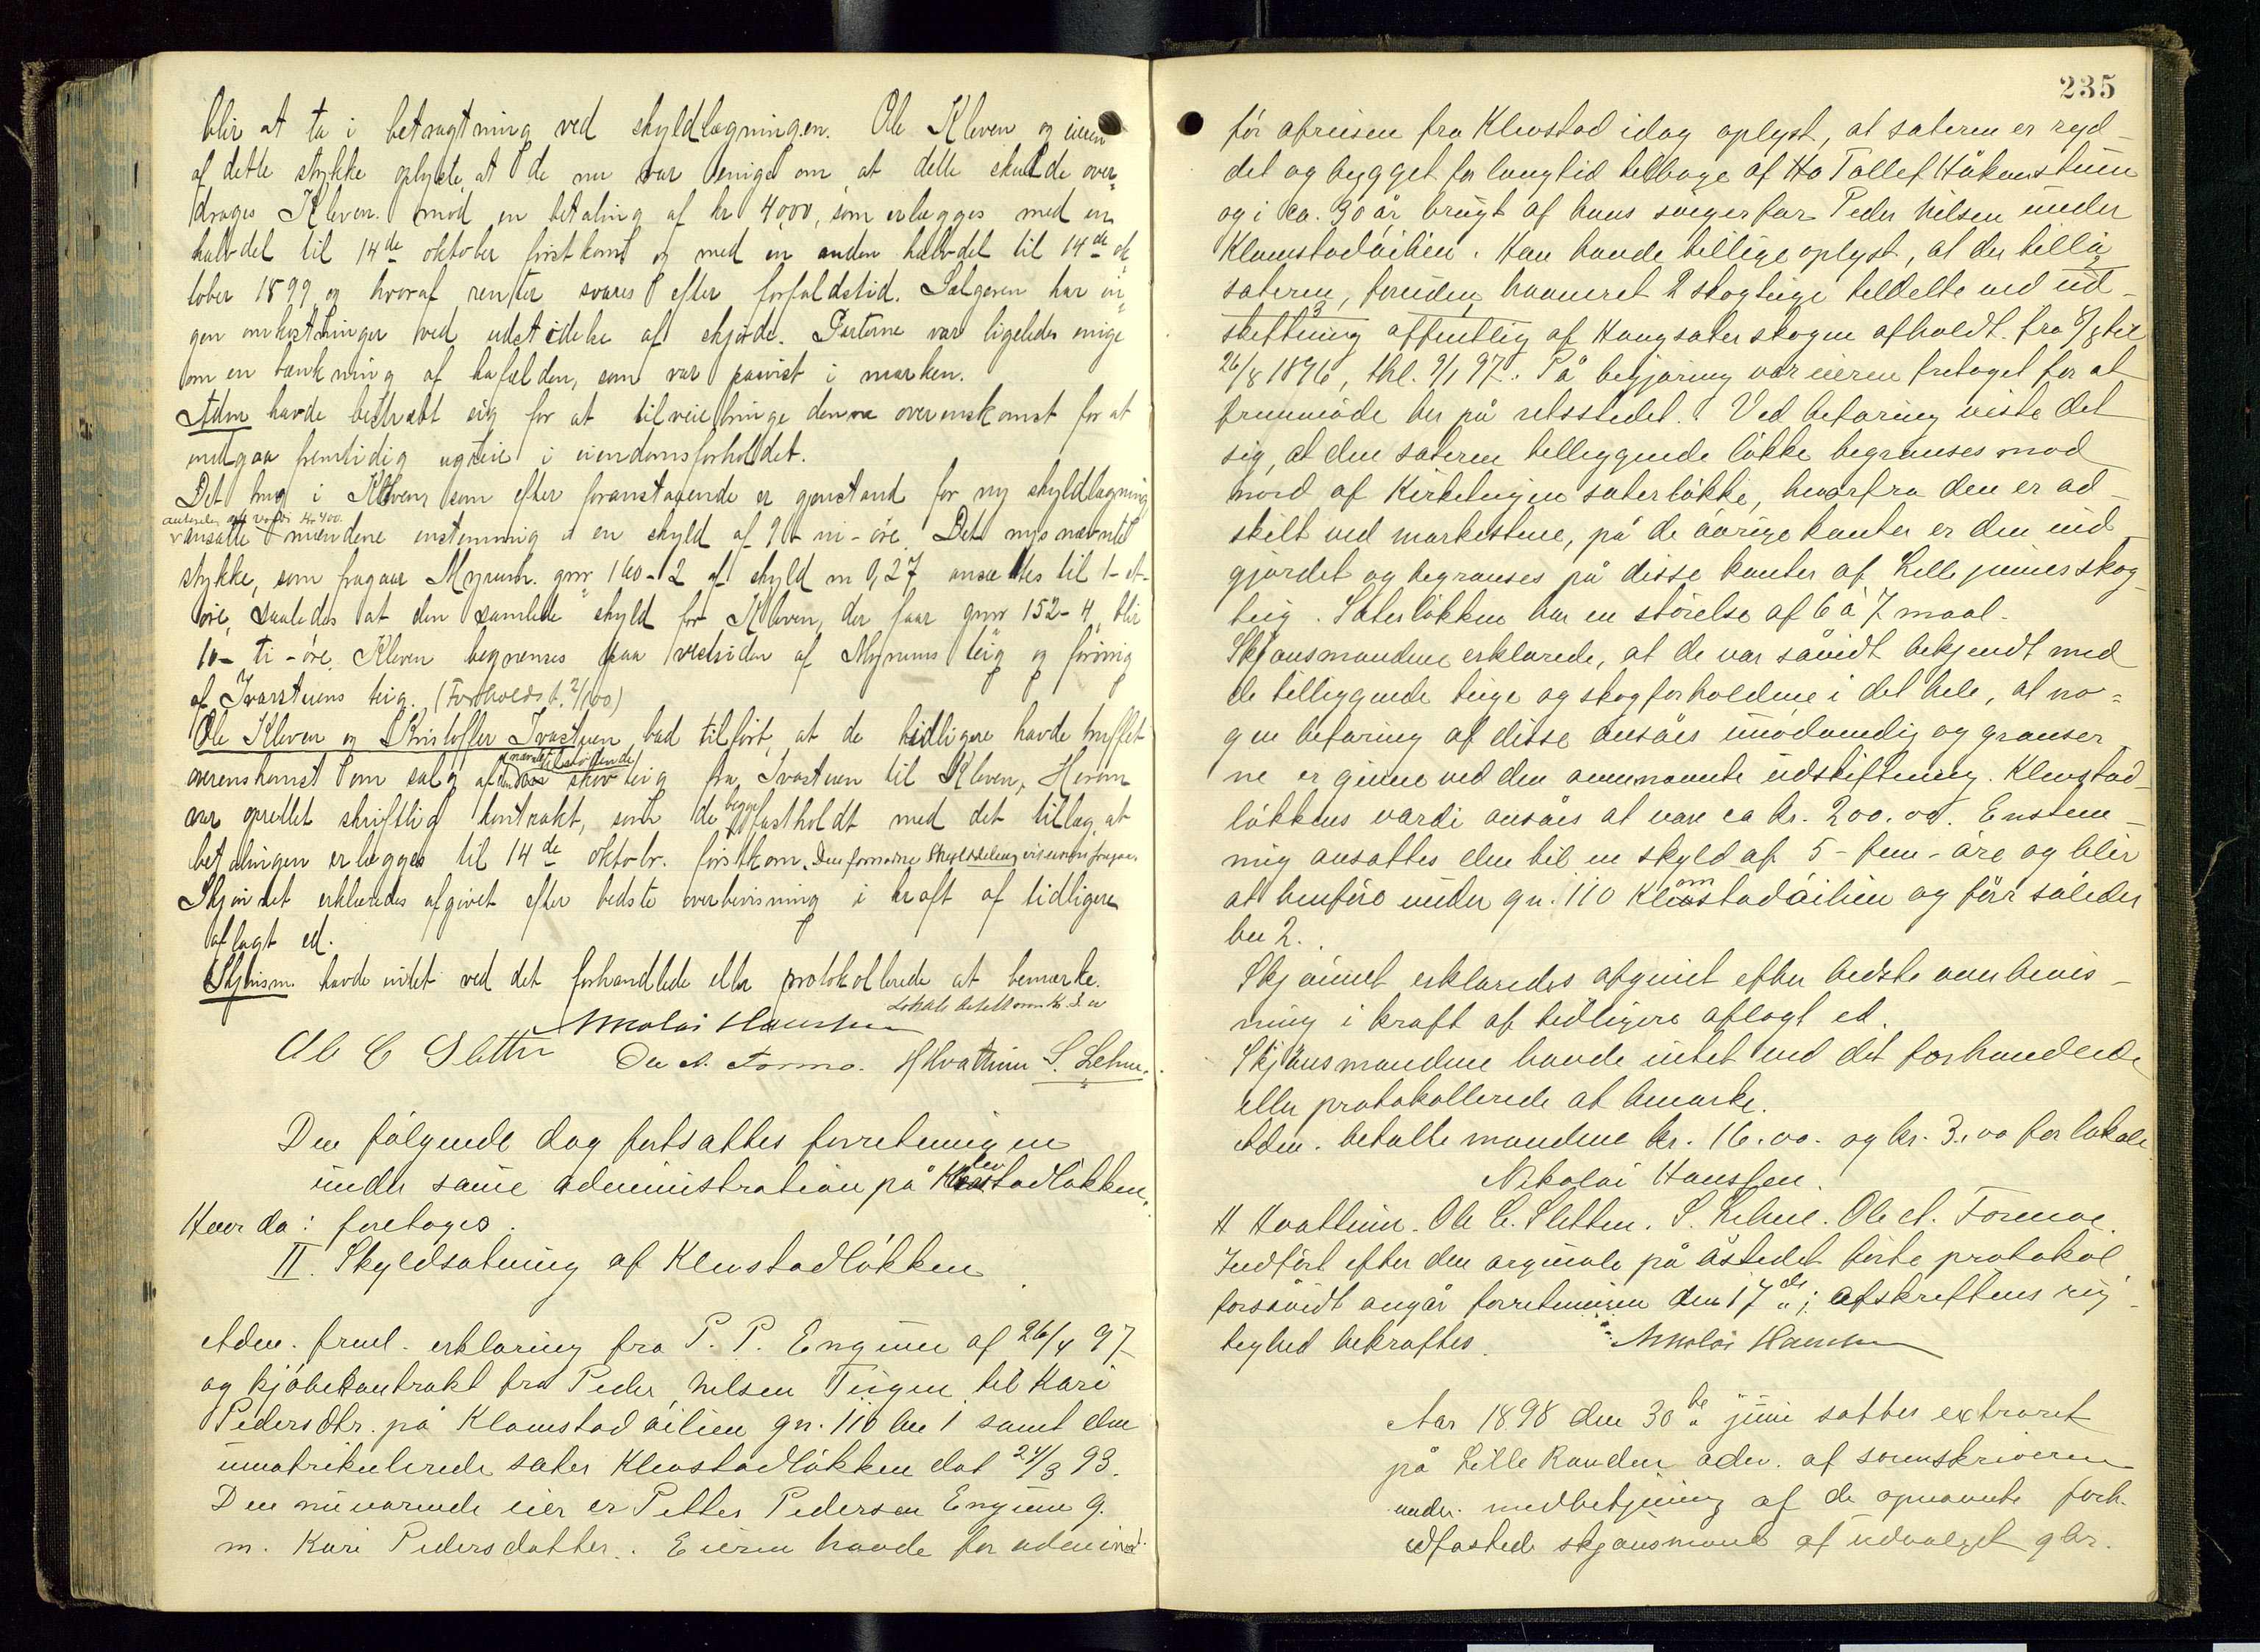 blir at ta i betragtning ved skyldlægningen. Ole Kleven og eieren
af dette stykke oplyste, at de nu var enige om at dette skulde over-
drages Kleven mod en betaling af kr 4000, som erlægges med en
halvdel til 14de oktober førstkom og med en anden halvdel til 14de ok-
tober 1899 og hvoraf renter svares efter forfaldstid. Sælgeren har in-
gen omkostninger ved udstedelse af skjøde. Parterne var ligeledes enige
om en af som var paavist i marken.
Adm havde sig for at tilveiebringe denne overenskomst for at
undgaa fremtidig ugreie i eiendomsforholdet.
Det brug i Kleven som efter foranstaaende er gjenstand for ny skyldlægning
antagelig værdi kr 400.
ansatte mændene enstemmig i en skyld af 9 - ni - øre. Det nysnævnte
stykke, som fragaar Myrum. gnr 160-2 af skyld m 0,27 ansættes til 1 - et -
øre, saaledes at den samlede skyld for Kleven, der faar gnr 152-4, blir
10 - ti - øre. Kleven begrænses paa vestsiden af Myrums teig og forøvrig
af Ivarstuens teig. (Forholdst. 2/100)
Ole Kleven og Kristoffer Ivastuen bad tilført, at de tidligere havde truffet
nævnte tilstødende
overenskomst om salg af skovteig fra Ivastuen til Kleven, Herom
var oprettet skriftlig kontrakt, som de begge fastholdt med det tillæg at
betalingen erlægges til 14de oktobr. førstkom. Den fornødne skylddeling vil
Skjønnet erklæredes afgivet efter bedste overbevisning i kraft af tidligere
aflagt ed.
Skjønsm. havde intet ved det forhandlede eller protokollerede at bemærke.
Lokale betalt om kr. 3 00
Nikolai Hanssen
Ole C Sletten Ole A. Formo. H Hvattum S. Lehne.
Den følgende dag fortsattes forretningen
under same administration på Klevstadløkken.
Hvor da: foretoges.
II. Skyldsætning af Klevstadløkken
Adm. freml. erklæring fra P. P. Engum af 26/4 97
og kjøbekontrakt fra Peder Nilsen Teigen til Kari
Pedersdtr. på Klomstadøilien gn. 110 bn 1 samt den
umatrikulerede sæter Klevstadløkken dat 24/3 93.
Den nuværende eier er Petter Pedersen Engum g.
m. Kari Pedersdatter. Eieren havde for admin.
235
før afreisen fra Klevstad idag oplyst, at sæteren er ryd-
det og bygget for langtid tilbage af Ho Tollef Håkenstuen
og i ca. 30 år brugt af hans svigerfar Peder Nilsen under
Klomstadøilien. Han havde tillige oplyst, at der tillå
sæteren, foruden havneret 2 skogteige tildelte ved ud-
skiftning offentlig af Haugsæterskogen afholdt fra 3/8 til
26/8 1896, thl. 9/1 97. På begjæring var eieren fritaget for at
fremmøde her på retsstedet. Ved befaring viste det
sig, at den sæteren tilliggende løkke begrænses mod
nord af Kirketeigen sæterløkke, hvorfra den er ad-
skilt ved markestene, på de øvrige kanter er den ind-
gjærdet og begrænses på disse kanter af Lillejuvers skog-
teig. Sæterløkken har en størelse af 6 à 7 maal.
Skjønsmændene erklærede, at de var såvidt bekjendt med
de tilliggende teige og skogforholdene i det hele, at no=
gen befaring af disse ansåes unødvendig og grænser
ne er givne ved den ovennævnte udskiftning. Klevstad-
løkkens værdi ansåes at være ca kr. 200.00. Enstem-
mig ansattes den til en skyld af 5 - fem - øre og blir
at henføre under gn. 110 Klomstadøilien og får således
bn 2.
Skjønnet erklæredes afgivet efter bedste overbevis-
ning i kraft af tidligere aflagt ed.
Skjønsmændene havde intet ved det forhandlede
eller protokollerede at bemærke.
Adm. betalte mændene kr. 16.00. og kr. 3.00 for lokale
Nikolai Hanssen.
H Hvattum. Ole C. Sletten. S. Lehne. Ole A. Formoe.
Indført efter den originale på åstedet førte protokol
forsåvidt angår forretningen den 17de; afskriftens rig-
tighed bekræftes. Nikolai Hanssen
Aar 1898 den 30te juni sattes extraret
på Lille Randen adm. af sorenskriveren
under medbetjening af de opnævnte forh.
edfæstede skjønsmænd af udvalget gbr.